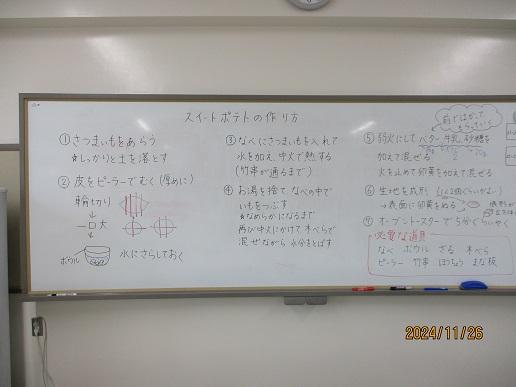 スイートポテトの作り方
①さつまいもをあらう
★しっかりと土を落とす
②皮をピーラーでむく(厚めに)
輪切り
一口大
ボウル
水にさらしておく
③なべにさつまいもを入れて
水を加え、中火で熱する
(竹串が通るまで)
④お湯を捨て、なべの中で
いもをつぶす
★なめらかになるまで
再び中火にかけて木べらで
混ぜながら水分をとばす
前ではかって
⑤弱火にしてバター、牛乳、砂糖を
加えて混ぜる
火を止めて卵黄を加えて混ぜる
⑥生地を成形
→表面に卵黄をぬる
⑦オーブントースターで5分ぐらいやく
必要な道具
なべ ボウル ざる 木べら
ピーラー 竹串 ほうちょう まな板
2024/11/26